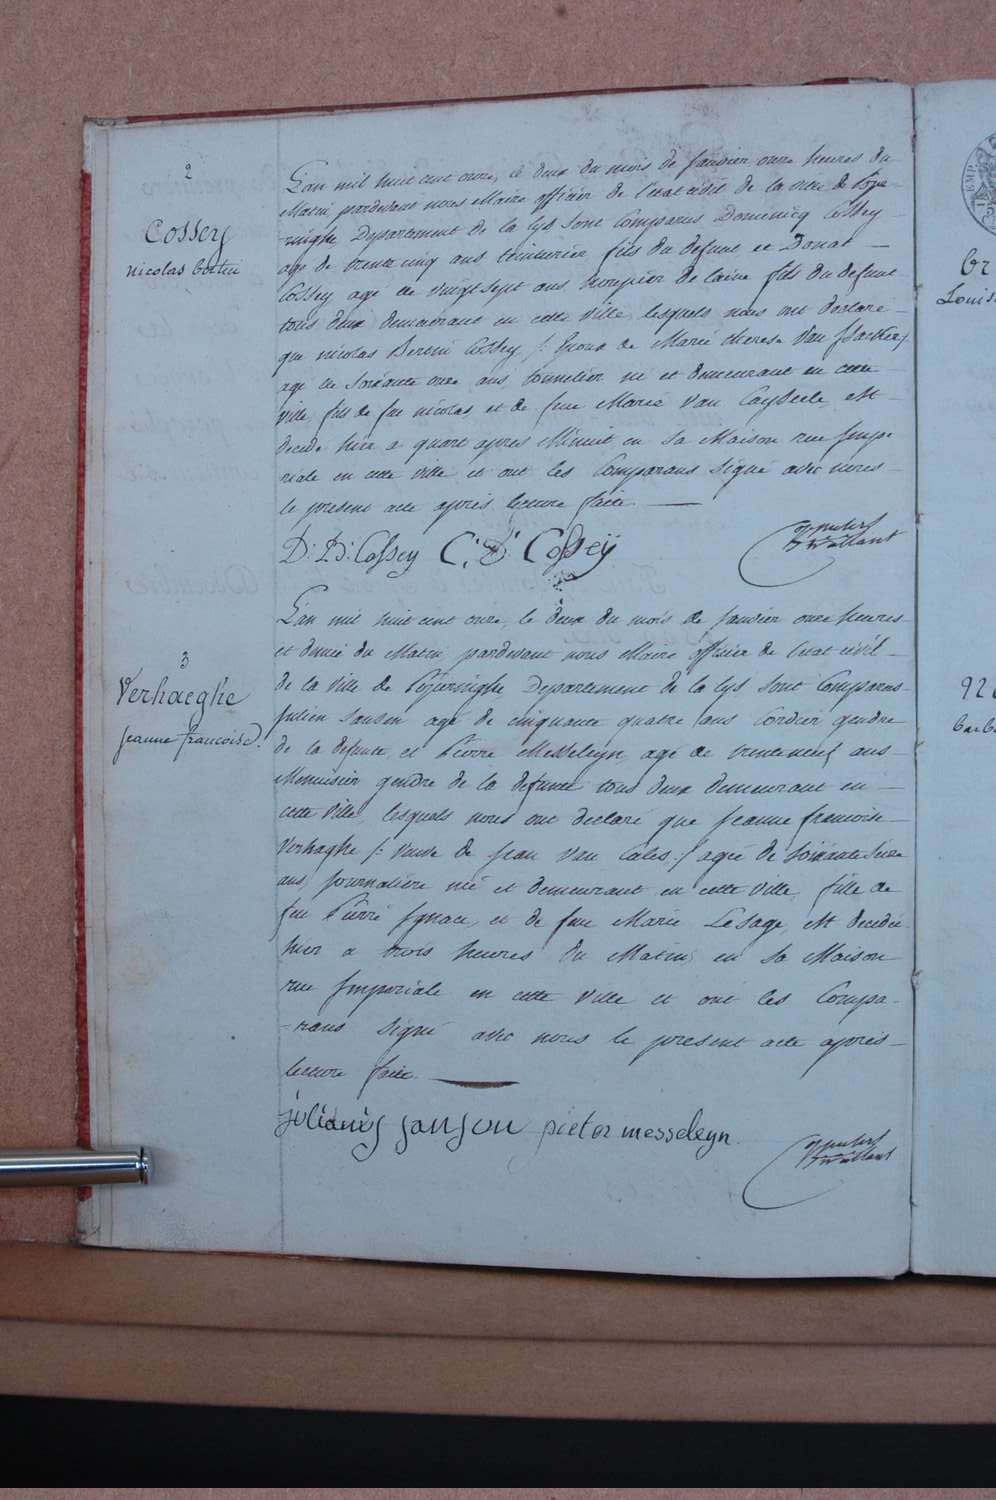 2
Cossey
nicolas bertin
L'an mil huit cent onze, le deux du mois de Janvier onze heures du
Matin pardevant nous Maire officier de l'etat civil de la ville de Pope-
-ringhe, Departement de la Lys sont Comparus Dominicq Cossey
agé de trente cinq ans teinturier fils du defunt et Donat
Cossey agé de vingt sept ans, fils du defunt
tous deux demeurant en cette ville, lesquels nous ont declaré
que nicolas Bertin Cossey /: Epoux de Marie therese Van
agé de soixante onze ans tonnelier né et demeurant en cette
ville, fils de feu nicolas et de feue Marie Van Cayseele, est
decedé hier a quart apres Minuit en sa Maison rue Impe
riale en cette ville et ont les Comparans signé avec nous
le present acte après lecture faite
D: B: Cossey C: D: Cosseÿ
3
Verhaeghe
jeanne francoise.
L'an mil huit cent onze, le deux du mois de Janvier onze heures
et demie du Matin pardevant nous Maire officier de l'etat civil
de la ville de Poperinghe Departement de la Lys sont Comparus
Julien Sansen agé de cinquante quatre ans Cordier gendre
de la defunte et Pierre Messeleyn agé de trente neuf ans
Menuisier gendre de la defunte tous deux demeurant en
cette ville, lesquels nous ont declaré que Jeanne francoise
Verhaghe /: veuve de Jean Van Cales :/ agée de soixante seize
ans journaliere née et demeurant en cette ville, fille de
feu Pierre Ignace, et de feue Marie Lesage, est decedée
hier a trois heures du Matin, en sa Maison
rue Imperiale en cette ville et ont les Compa-
-rans signé avec nous le present acte après
lecture faite.
julianus sansen pieter messeleyn
br
Louis